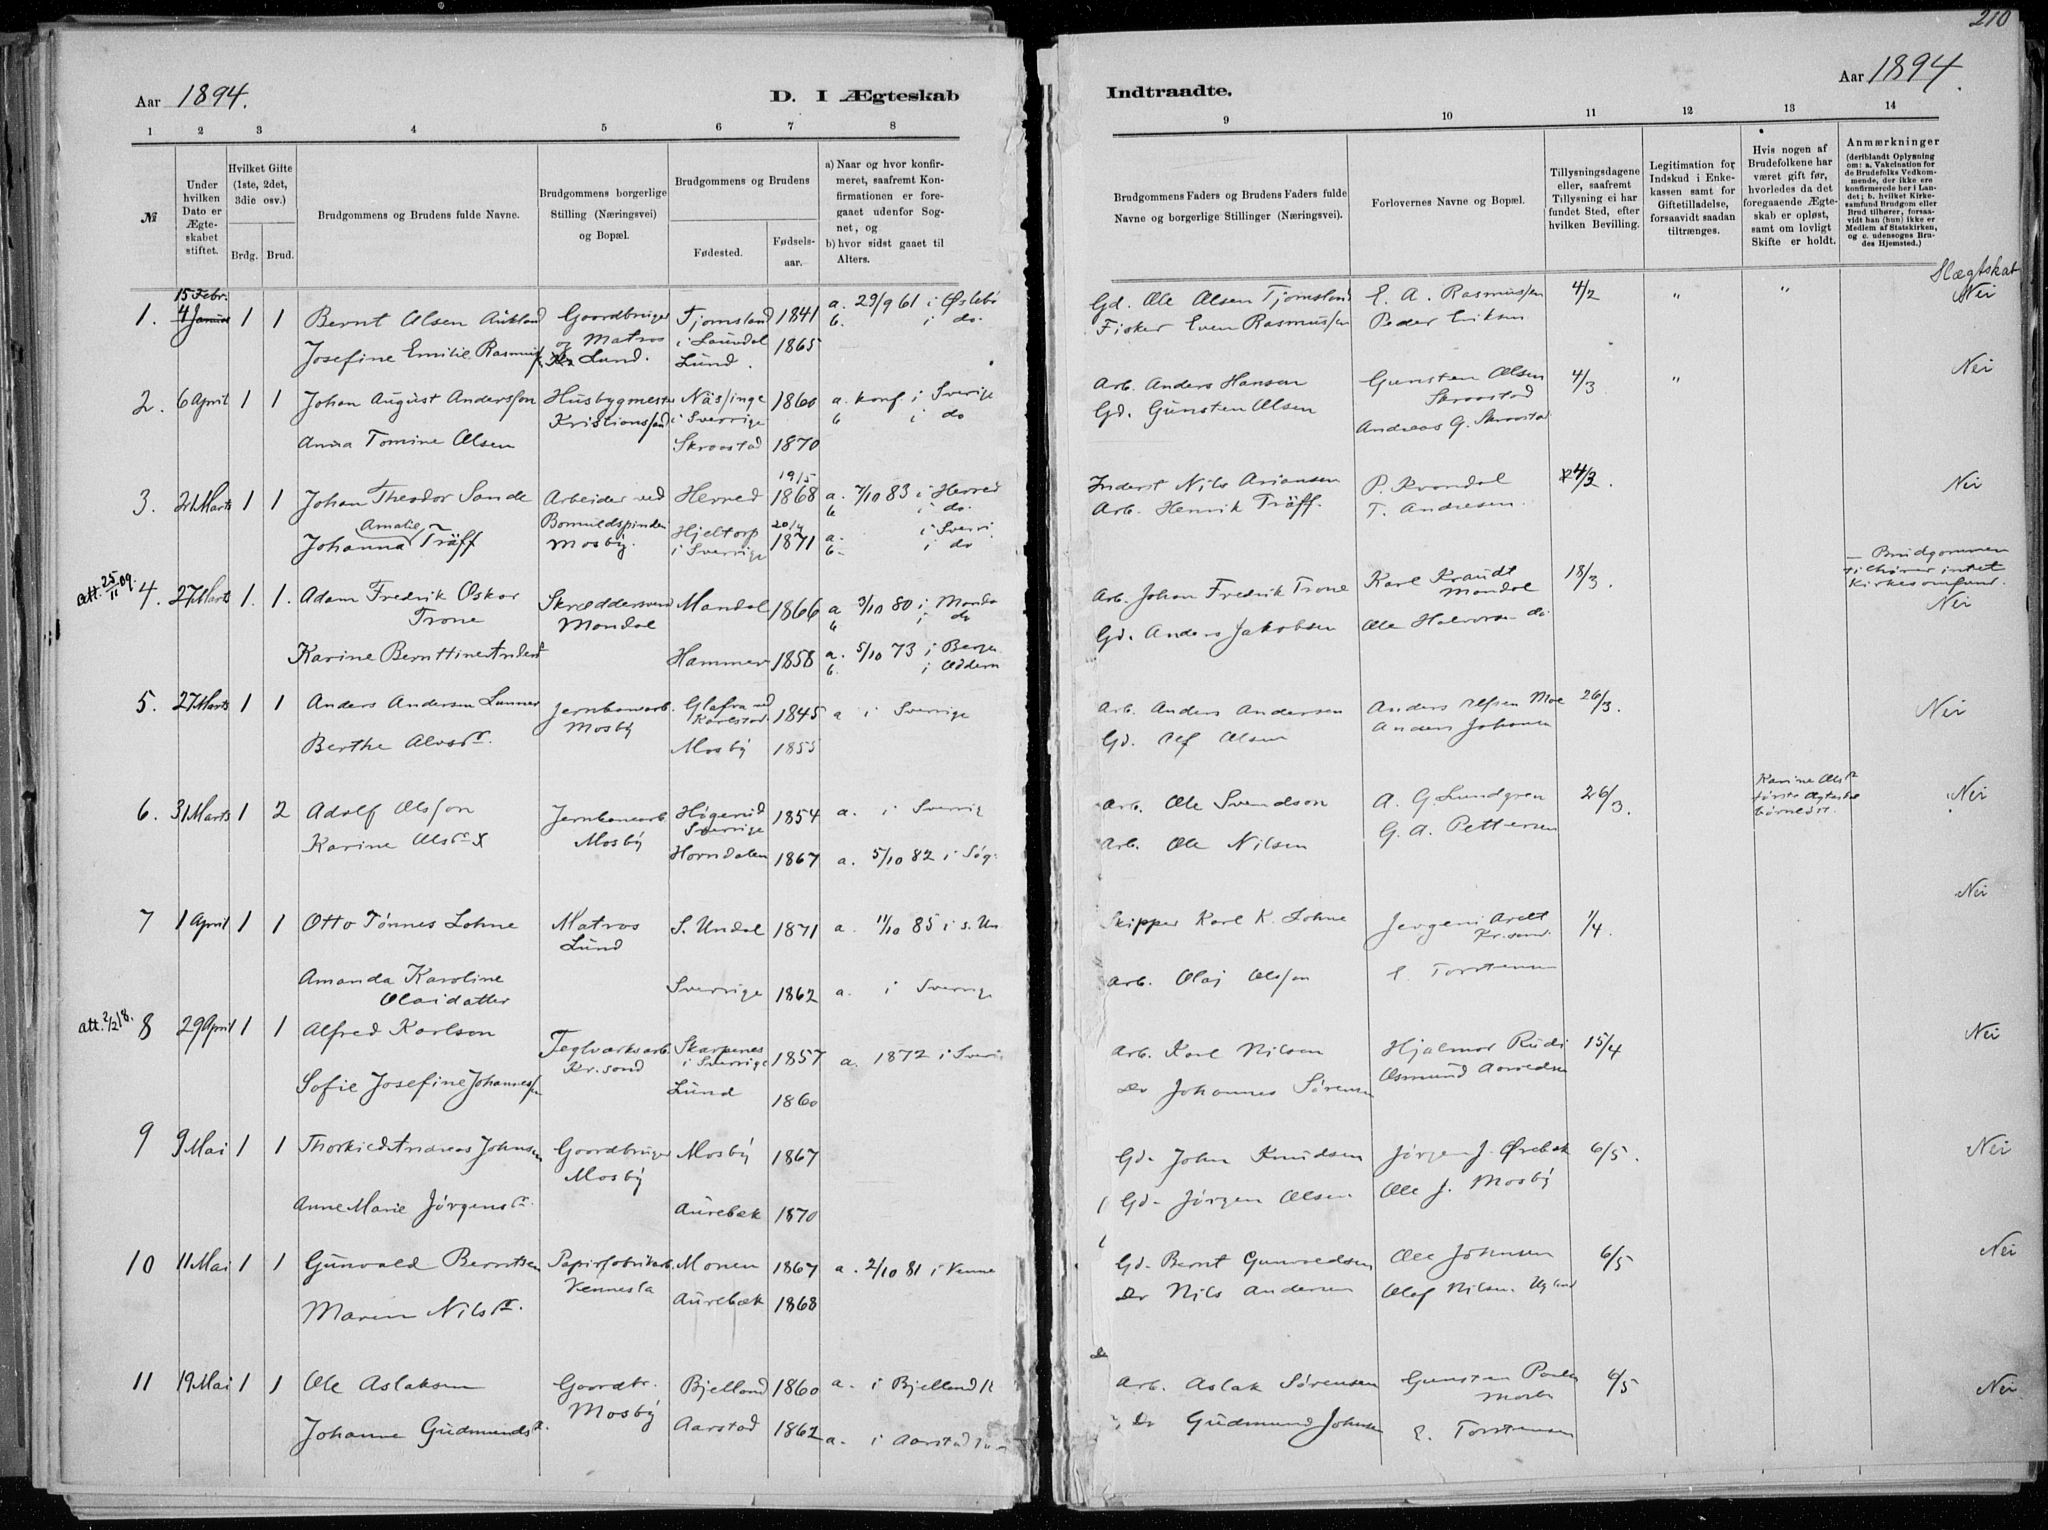 210
Aar 1894.
D. I Ægteskab
Indtraadte.
Aar 1894.
1 2 3 4 5 6 7 8
9 10 11 12 13 14
№
Under hvilken Dato er Ægteskabet stiftet.
Hvilket Gifte (1ste, 2det, 3die osv.)
Brdg. Brud.
Brudgommens og Brudens fulde Navne.
Brudgommens borgerlige Stilling (Næringsvei) og Bopæl.
Brudgommens og Brudens
Fødested.
Fødselsaar.
a) Naar og hvor konfirmeret, saafremt Konfirmationen er foregaaet udenfor Sognet, og
b) hvor sidst gaaet til Alters.
Brudgommens Faders og Brudens Faders fulde Navne og borgerlige Stillinger (Næringsvei).
Forlovernes Navne og Bopæl.
Tillysningsdagene eller, saafremt Tillysning ei har fundet Sted, efter hvilken Bevilling.
Legitimation for Indskud i Enkekassen samt for Giftetilladelse, forsaavidt saadan tiltrænges.
Hvis nogen af Brudefolkene har været gift før, hvorledes da det foregaaende Ægteskab er opløst, samt om lovligt Skifte er holdt.
Anmærkninger
(deriblandt Oplysning om: a. Vakcination for de Brudefolks Vedkommende, der ikke ere konfirmerede her i Landet; b. hvilket Kirkesamfund Brudgom eller Brud tilhører, forsaavidt han (hun) ikke er Medlem af Statskirken, og c. udensogns Brudes Hjemsted.)
Slægtskab
15 Febr.
1. 4 Januar 1 1 Bernt Olsen Aukland Gaardbruger Tjomsland 1841 a. 29/9 61 i Øslebø
og Matros i Laudal b. i do.
Josefine Emilie Rasmuss. Lund. Lund. 1865
Gd. Ole Olsen Tjomsland E. A. Rasmussen 4/2 " " Nei
Fisker Even Rasmussen Peder Eriksen
2. 6 April 1 1 Johan August Andersson Husbygmester Näsinge 1860 a. Konf. i Sverige
Kristianssand i Sverrige b. i do
Anna Tomine Olsen Skraastad 1870
Arb. Anders Hansen Gunsten Olsen 4/3 " Nei
Gd. Gunsten Olsen Skraastad
Andreas G. Skraastad
3. 21 Marts 1 1 Johan Theodor Sande Arbeider ved Herred 19/5 1868 a. 7/10 83 i Herred
Bomuldspinderi b. i do.
Johanna Amalie Träff Mosby. Hjeltorp 20/4 1871 a. i Sverri
i Sverrige b. i do
Inderst Nils Ariansen P. Kvandal 4/3. Nei
Arb. Henrik Träff. T. Andresen.
att. 25/11 09.
4. 27 Marts 1. 1. Adam Fredrik Oskar Skræddersvend Mandal 1866 a 3/10 80 i Manda
Trone Mandal b i do
Karine Bernttine Anders Hammer 1858 a. 5/10 73 i Bergen
b. i Oddern
Arb. Johan Fredrik Trone Karl Krandt 18/3. – Brudgommen
Mandal tilhører intet
Kirkesamfund.
Gd. Anders Jakobsen Ole Halvorsen do Nei
5. 27 Marts 1 1 Anders Andersen Lunner Jernbanearb. Glafva ved 1845 a i Sverrige
Mosby Karlstad
Berthe Alvsdr. Mosby 1855
Arb. Anders Andersen Anders Alfsen Moe 26/3. Nei
Gd. Alf Olsen Anders Johansen
6. 31 Marts 1 2 Adolf Olsson Jernbanearb. Högerud 1854 a. i Sverrig
Mosby Sverrige
Karine Olsdr X Horndalen 1867 a. 5/10 82 i Søg.
Arb. Ole Svendson A. G. Lundgren 26/3. Karine Olsdr Nei
første Ægteskab
barnløst.
Arb. Ole Nilsen G. A. Pettersen
7 1 April 1 1 Otto Tønnes Lohne Matros S. Undal 1871 a. 11/10 85 i S. Un
Lund
Amanda Karoline Sverrige 1862 a. i Sverrige
Olaidatter
Skipper Karl K. Lohne Jørgen Arelt 1/4. Nei
Kr.sand.
Arb. Olaj Olsson E. Torstensen
att. 2/2 18.
8 29 April 1 1 Alfred Karlson Teglværksarb. Skarpenes 1857 a. 1872 i Sveri
Kr.sand i Sverrige
Sofie Josefine Johannessen Lund 1860
Arb. Karl Nilsen Hjalmar Rudi 15/4 Nei
Do Johannes Sørensen Osmund Aanedsen
9 9 Mai 1 1 Thorkild Andreas Johnsen Gaardbruger Mosby 1867
Mosby
Anne Marie Jørgensdr. Aurebæk 1870
Gd. John Knudsen Jørgen J. Ørebæk 6/5. Nei
Gd. Jørgen Olsen. Ole J. Mosby
10 11 Mai 1 1 Gunvald Berntsen Papirfabrikarb. Monen 1867 a. 2/10 81 i Venne
Vennesla
Maren Nilsdr. Aurebæk 1868
Gd. Bernt Gunvaldsen Ole Johnsen 6/5 Nei
Do Nils Andersen Olaf Nilsen Ugland
11 19 Mai 1 1 Ole Aslaksen Gaardbr. Bjelland 1860 a. i Bjelland K
Mosby
Johanne Gudmundsdr. Aarstad 1862 a. i Aarstad
Arb. Aslak Sørensen Gunsten Paulsen 6/5 Nei.
Mosby
Do Gudmund Johnsen E. Torstensen